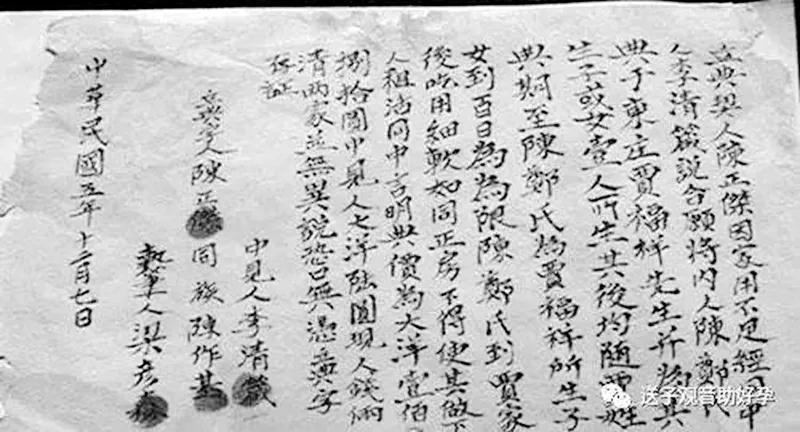 立典契人陳正傑因家用不足經同中
人李清箴説合願將内人陳鄭氏
典于東庄賈福祥先生并將其
生子或女壹人所生其後均隨賈姓
典期至陳鄭氏為賈福祥所生子
女到百日為為限陳鄭氏到賈家
後吃用細軟如同正房不得使其做下
人租沽同中言明典價為大洋壹佰
捌拾圓中見人七洋陆圓現人錢俩
清两家並無異説恐口無憑立典字
存証
中見人李清箴
立典字人陳正傑 同族陳作基
執筆人梁彦森
中華民國五年十二月七日
送子观音助好孕